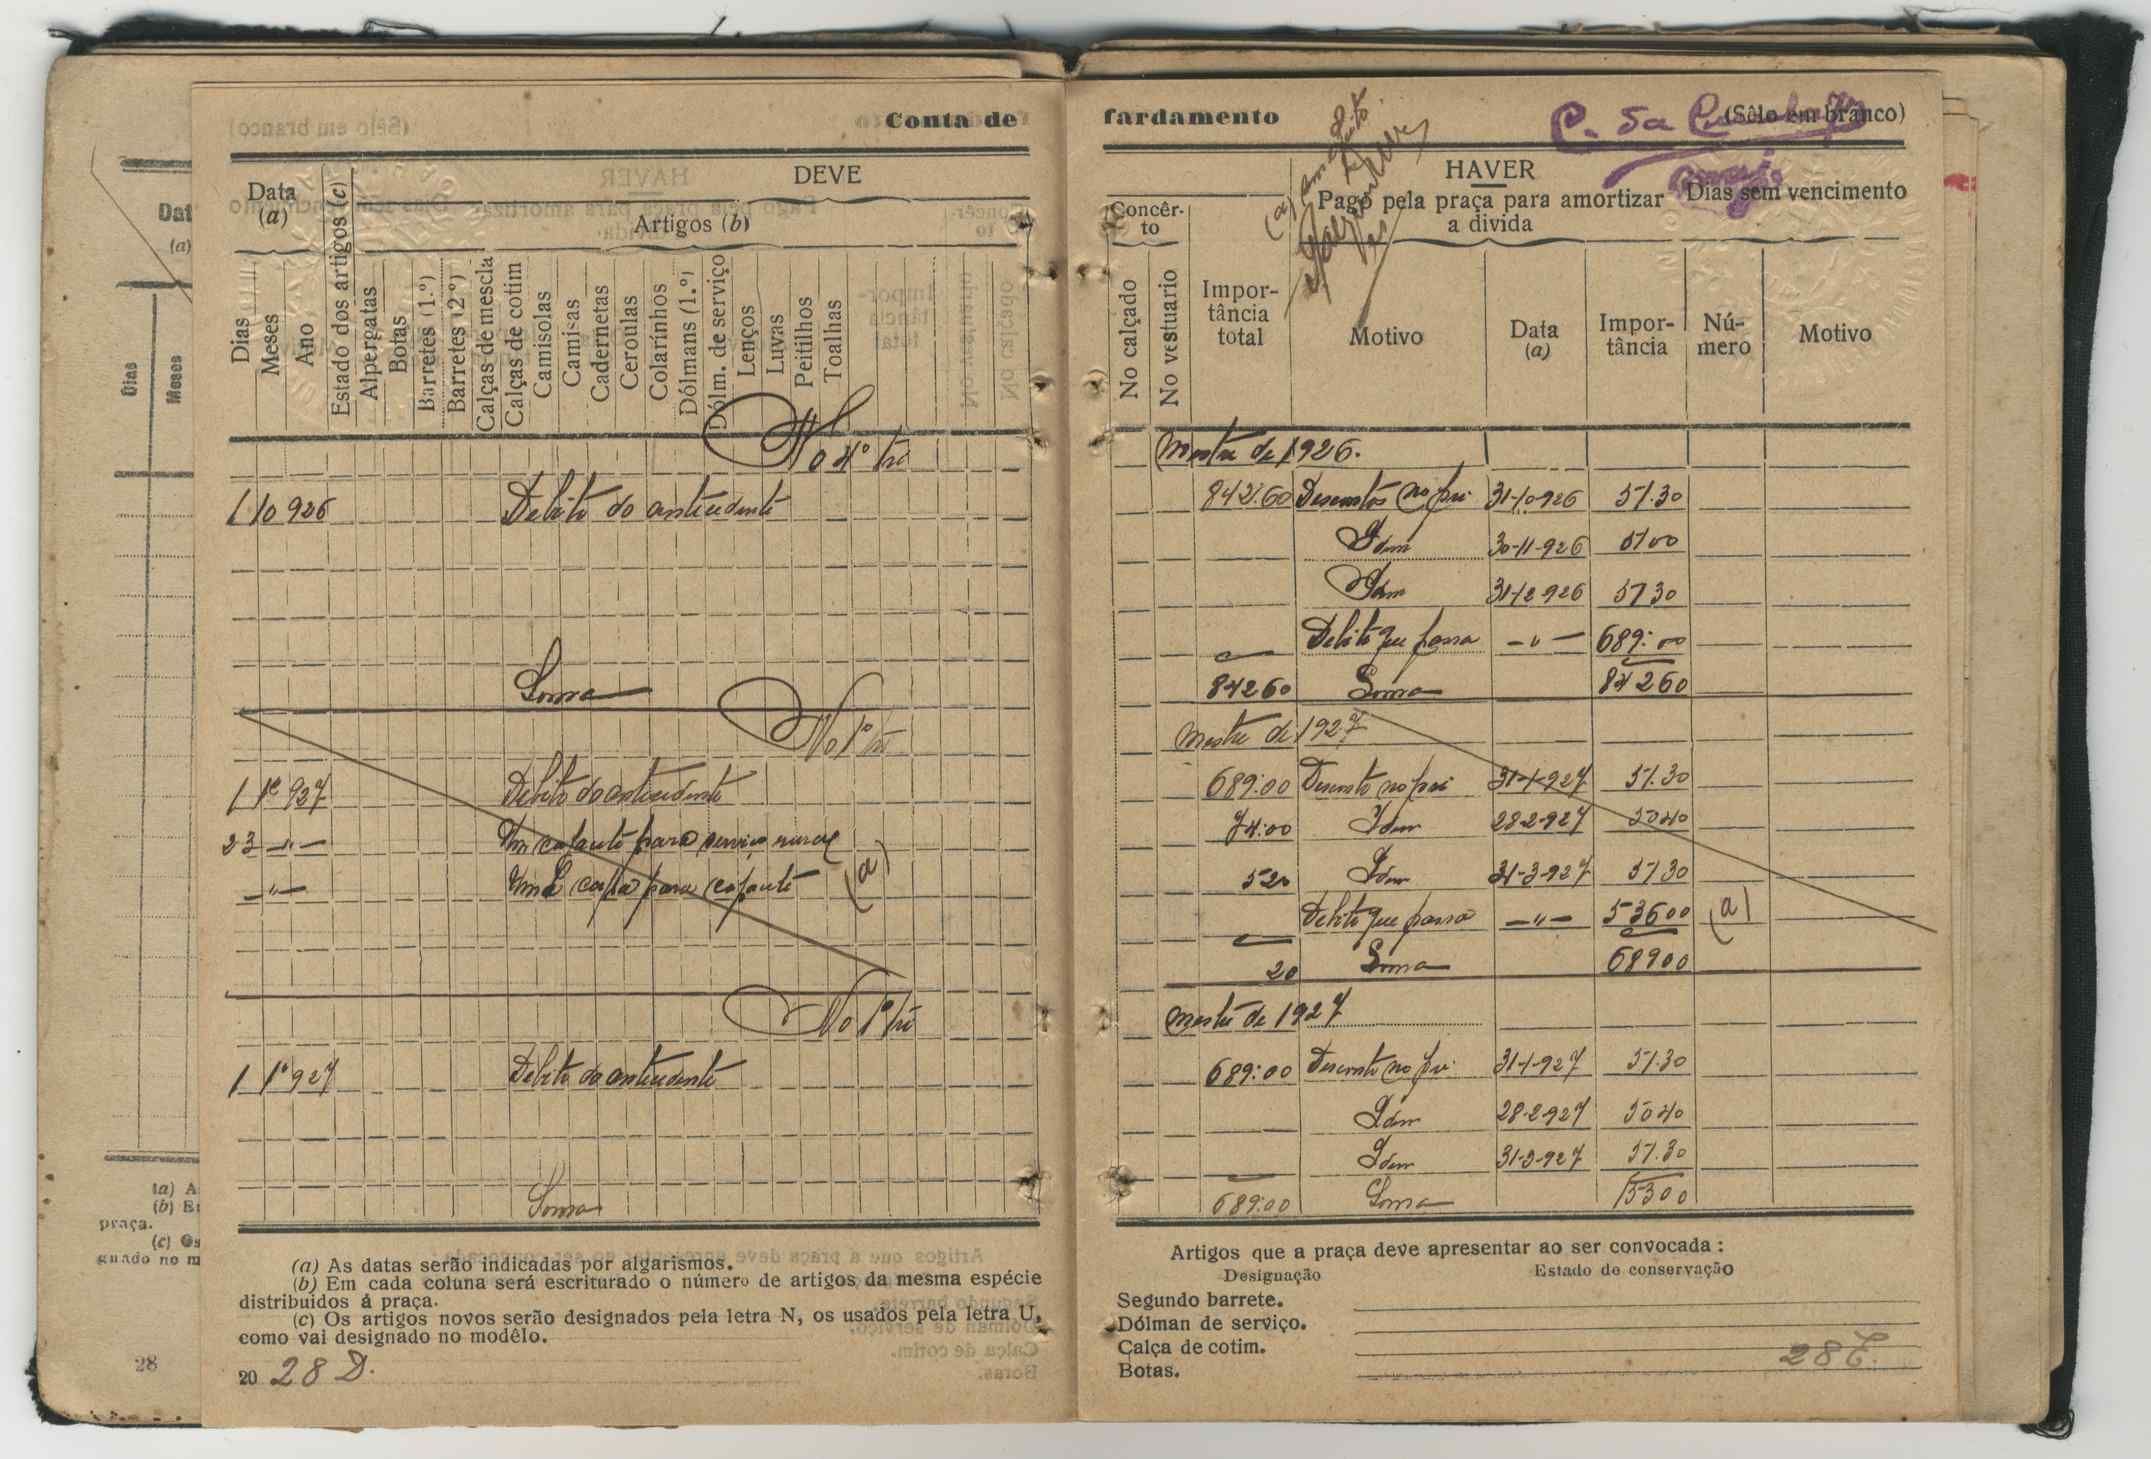 Conta de fardamento (Sêlo em branco)
C. da
Data (a)
DEVE
Artigos (b)
Dias
Meses
Ano
Estado dos artigos (c)
Alpergatas
Botas
Barretes (1.º)
Barretes (2.º)
Calças de mescla
Calças de cotim
Camisolas
Camisas
Cadernetas
Ceroulas
Colarinhos
Dólmans (1.º)
Dólm. de serviço
Lenços
Luvas
Peitilhos
Toalhas
HAVER
Concêrto
No calçado
No vestuario
Importância total
Pago pela praça para amortizar a divida
Motivo
Data (a)
Importância
Dias sem vencimento
Número
Motivo
(a) em
No 4º tri mestre de 1926.
1 10 926 Debito do antecedente 842.60 Descontos no pré 31-10-926 51.30
Idem 30-11-926 51 00
Idem 31-12-926 51 30
Debito que passa —"— 689:00
Soma 842 60 Soma 842 60
No 1º tri mestre de 1927
1 1º 927 Debito do antecedente 689:00 Desconto no pré 31-1-927 51.30
23 —"— Um capante para serviço rural 74:00 Idem 28-2-927 50 40
—"— Uma capa para capante (a) 520 Idem 31-3-927 51 30
Debito que passa —"— 536 00 (a)
20 Soma 689 00
No 1º tri mestre de 1927
1 1º 927 Debito do antecedente 689:00 Desconto no pré 31-1-927 51.30
Idem 28-2-927 50 40
Idem 31-3-927 51.30
Soma 689:00 Soma 153 00
(a) As datas serão indicadas por algarismos.
(b) Em cada coluna será escriturado o número de artigos da mesma espécie
distribuidos á praça.
(c) Os artigos novos serão designados pela letra N, os usados pela letra U,
como vai designado no modêlo.
20 28 D.
Artigos que a praça deve apresentar ao ser convocada:
Designação Estado de conservação
Segundo barrete.
Dólman de serviço.
Calça de cotim.
Botas.
28 E.
Dat
(a)
Dias
Meses
(a) A
(b) E
praça.
(c) Os
gnado no m
28